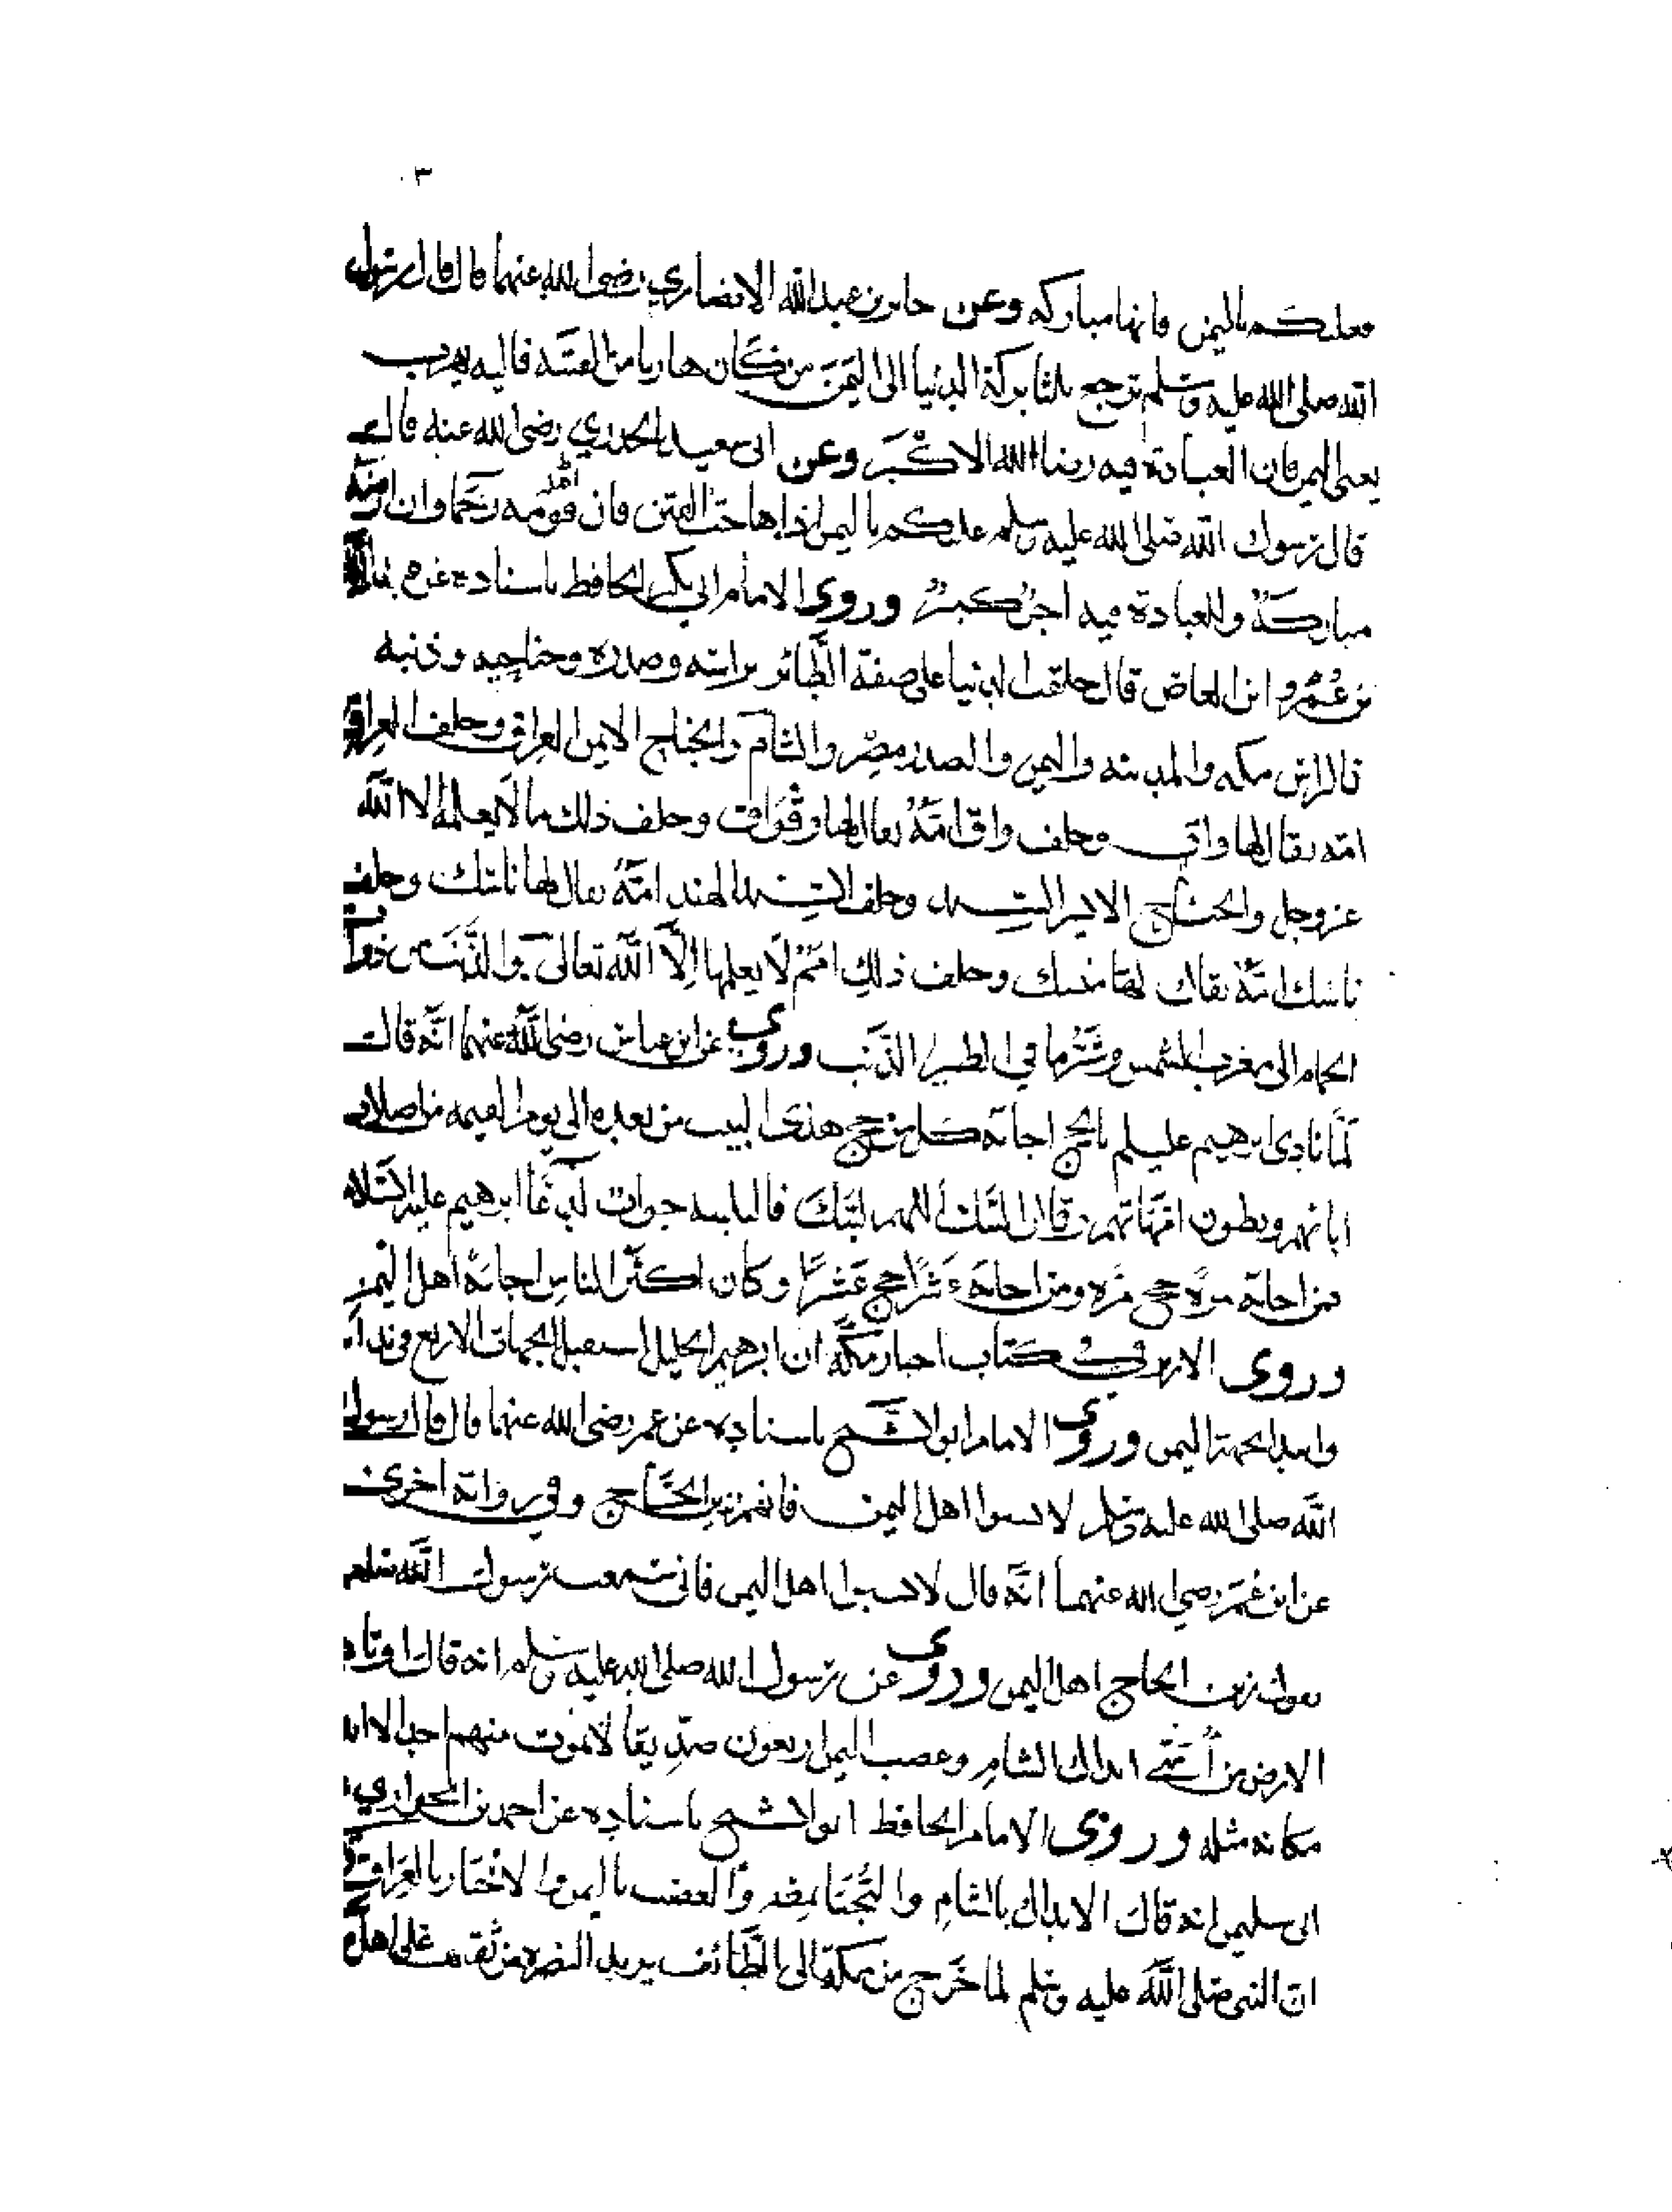 ٣
فعليكم باليمن فانها مباركه وعن جابر بن عبدالله الانصاري رضي الله عنهما قال قال رسول
الله صلى الله عليه وسلم ترجع ثلثا بركة الدنيا الى اليمن من كان هاربا من الفتنه فاليه يهرب
يعنى اليمن فان العبادة فيه رضا الله الاكبر وعن ابى سعيد الخدري رضى الله عنه قال
قال رسول الله صلى الله عليه وسلم عليكم باليمن اذا هاجت الفتن فان قومه رحما وان ارضه
مباركة وللعبادة فيه اجر كبير وروى الامام ابى بكر الحافظ باسناده عن عبدالله
بن عمرو ابن العاص قال خلقت الدنيا على صفة الطائر براسه وصدره وجناحيه وذنبه
فالراس مكه والمدينه واليمن والصدر مصر والشام والجناح الايمن العراق وخلف العراق
امه يقال لها واق وخلف واق امة يقال لها وقواق وخلف ذلك ما لا يعلمه الا الله
عز وجل والجناح الايسر السند وخلف السند الهند امة يقال لها ناسك وخلف
ناسك امة يقال لها منسك وخلف ذلك امم لا يعلمها الا الله تعالى والذنب من ذوات
الحمام الى مغرب الشمس وشر ما في الطير الذنب وروي عن ابن عباس رضي الله عنهما انه قال
لما نادى ابرهيم عليلم بالحج اجابه كل من حج هذا البيت من بعده الى يوم القيمه من اصلاب
ابائهم وبطون امهاتهم وقال لبيك اللهم لبيك فالتلبيه جواب لدعا ابرهيم عليه السلام
فمن اجابه مرة حج مرة ومن اجابه عشرا حج عشرا وكان اكثر الناس اجابة اهل اليمن
وروى الازرقي في كتاب اخبار مكة ان ابرهيم الخليل استقبل الجهات الاربع في نداه
وابدا بجهة اليمن وروي الامام ابو الشيخ باسناده عن عمر رضى الله عنهما قال قال رسول
الله صلى الله عليه وسلم لا تسبوا اهل اليمن فانهم زين الحاج وفي رواية اخرى
عن ابن عمر رضي الله عنهما انه قال لا تسبوا اهل اليمن فانى سمعت رسول الله صلعم
يقول زين الحاج اهل اليمن وروي عن رسول الله صلى الله عليه وسلم انه قال اوتاد
الارض من امتي ابدال الشام وعصب اليمن اربعون صديقا لا يموت منهم احد الا ابدل
مكانه مثله وروى الامام الحافظ ابو الشيخ باسناده عن احمد بن الحواري
ابى سليمن انه قال الابدال بالشام والنجبا بمصر والعصب باليمن والاخيار بالعراق
ان النبي صلى الله عليه وسلم لما خرج من مكة الى الطائف يريد النصره من ثقيف على اهل